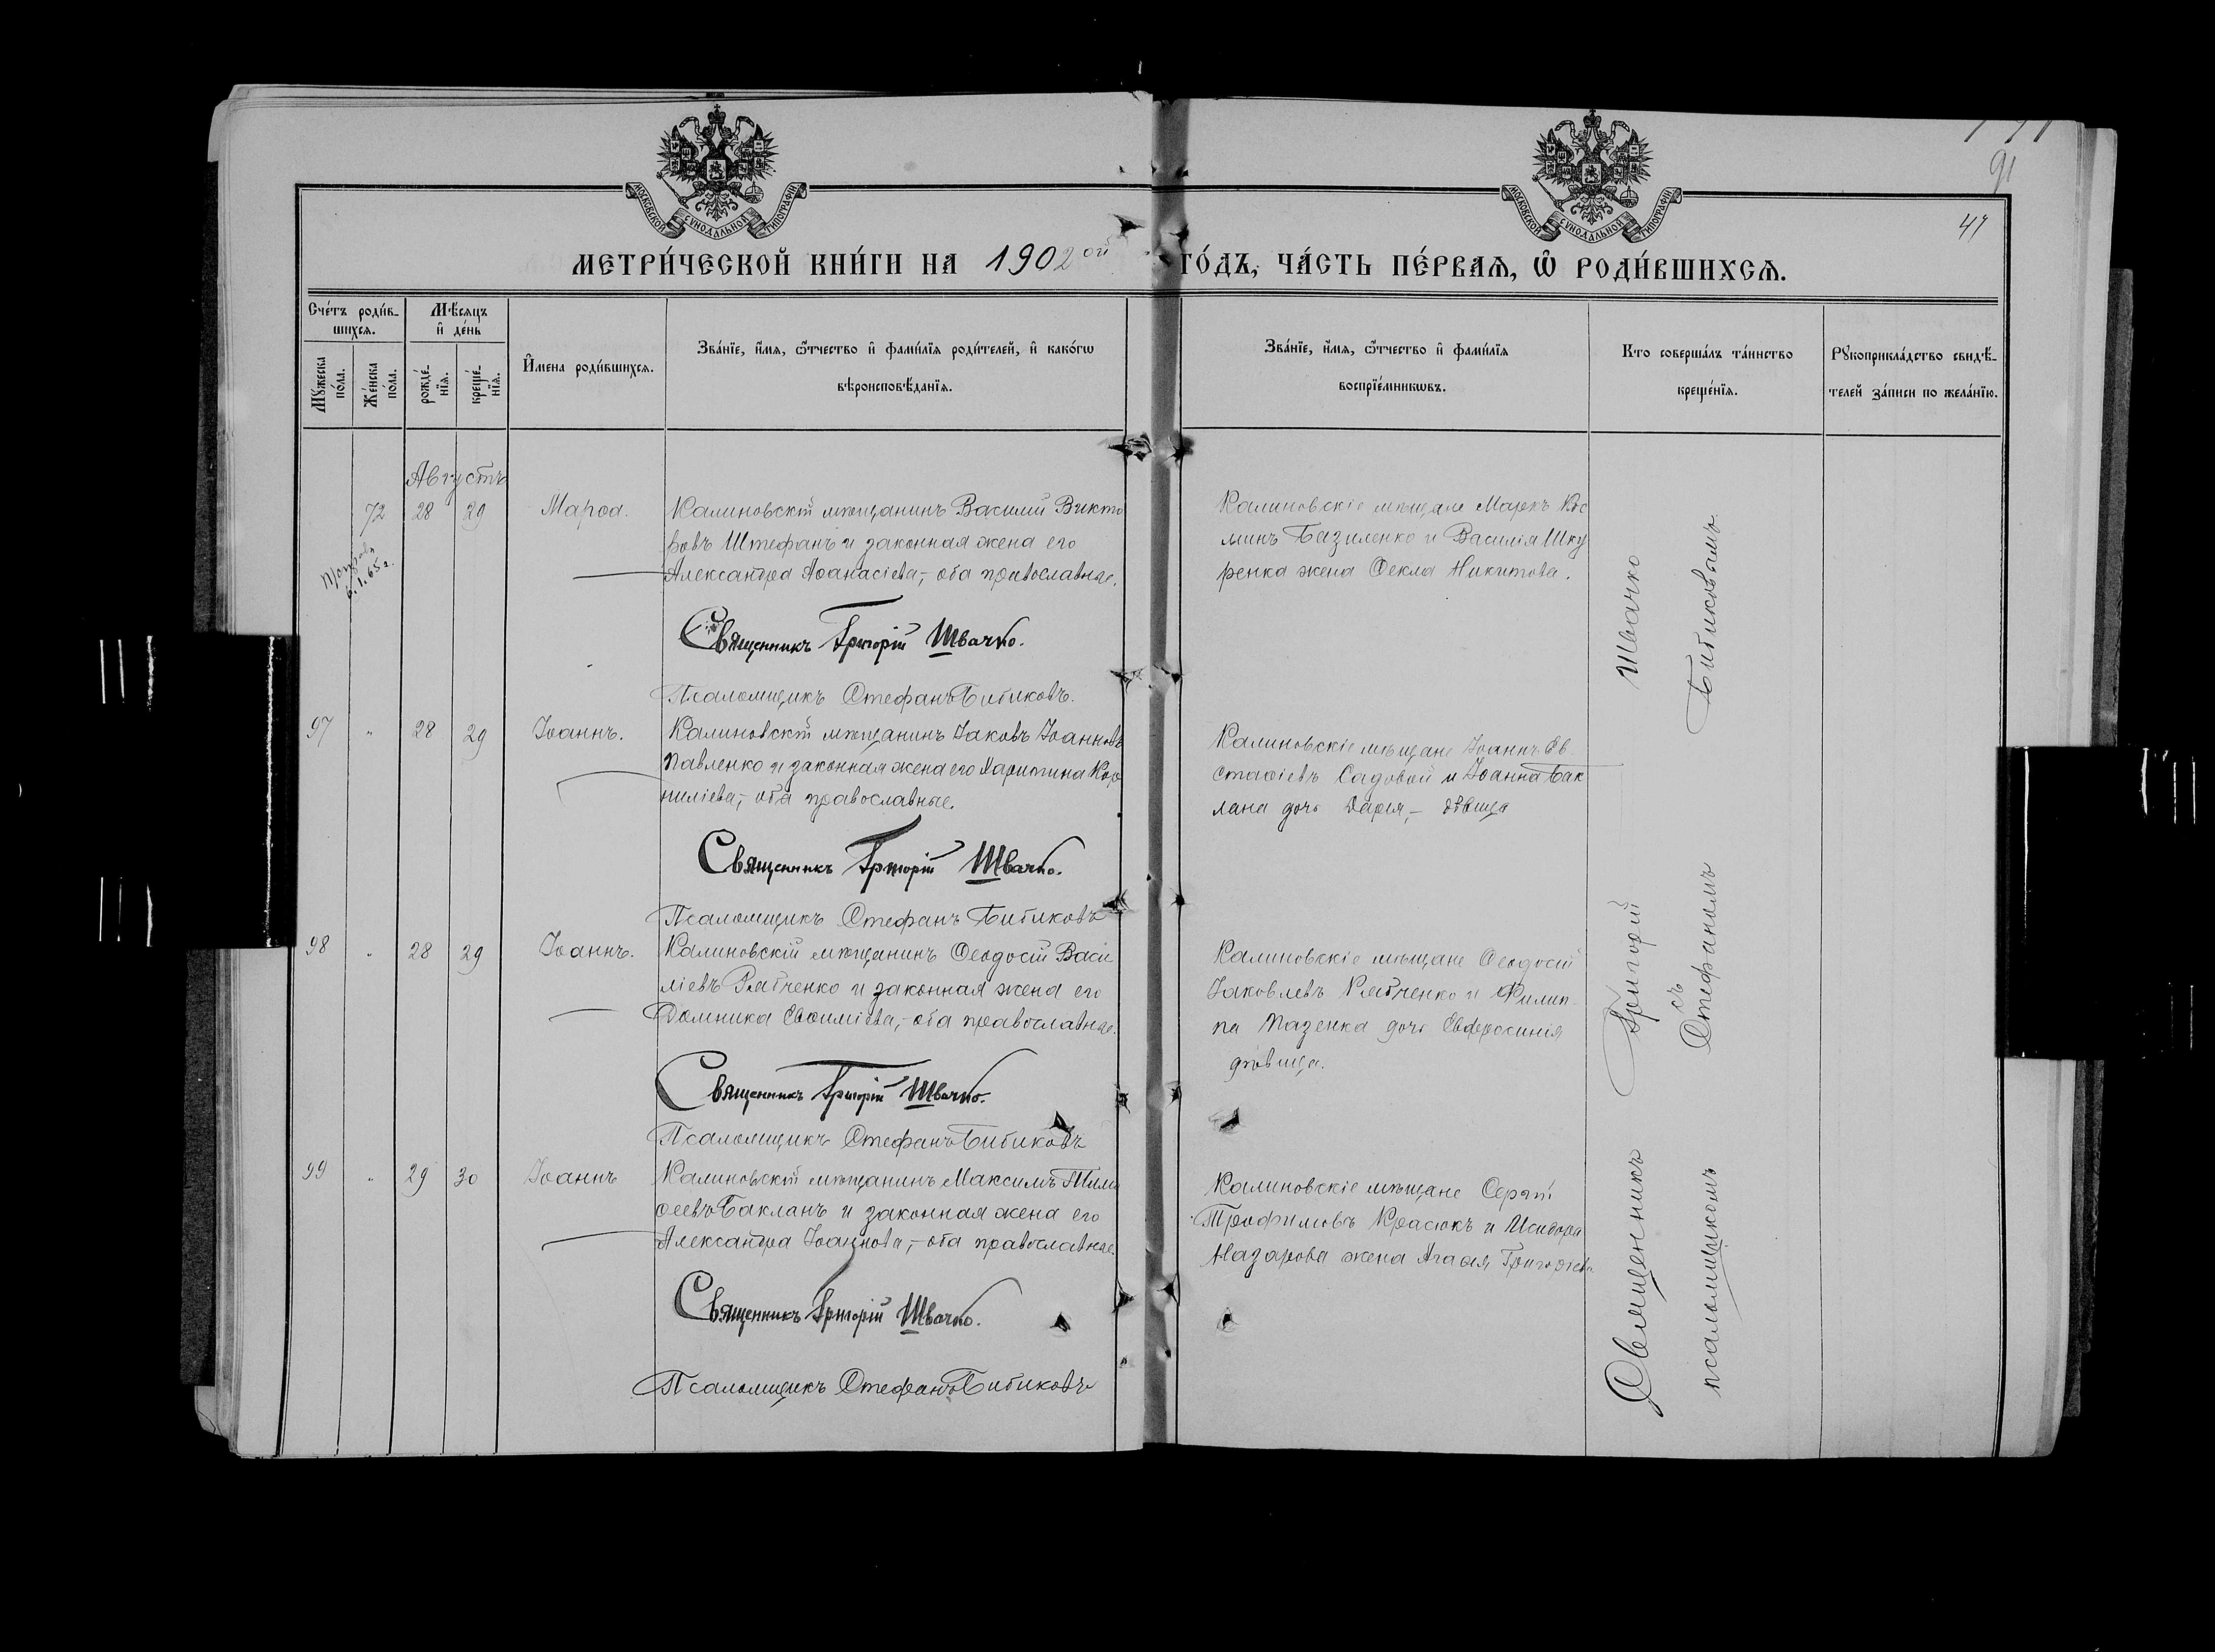 91
41
МОСКОВСКОЙ СѴНОДАЛЬНОЙ ТИПОГРАФІИ
МОСКОВСКОЙ СѴНОДАЛЬНОЙ ТИПОГРАФІИ
МЕТРИ́ЧЕСКОЙ КНИ́ГИ НА 1902ой ГО́ДЪ, ЧА́СТЬ ПЕ́РВАѦ, Ѡ РОДИ́ВШИХСѦ.
Сче́тъ роди́в-
шихсѧ.
Мꙋ́жеска по́ла.
Же́нска по́ла.
Мѣ́сѧцъ
и҆ де́нь
рожде́-
нїѧ.
креще́-
нїѧ.
И҆мена роди́вшихсѧ.
Зва́нїе, и҆́мѧ, ѻ҆́тчество и҆ фами́лїѧ роди́телей, и҆ како́гѡ
вѣроисповѣ́данїѧ.
Зва́нїе, и҆́мѧ, ѻ҆́тчество и҆ фами́лїѧ
воспрїе́мникѡвъ.
Кто соверша́лъ та́инство
креще́нїѧ.
Рꙋкоприкла́дство свидѣ́-
телей за́писи по жела́нїю.
Августъ
72 28 29 Марѳа.
Калиновскій мѣщанинъ Василій Викто
ровъ Штефанъ и законная жена его
Александра Аѳанасіева,- оба православные.
6.1.65 г.
Священникъ Григорій Швачко.
Псаломщикъ Стефанъ Бибиковъ.
Калиновскіе мѣщане Маркъ Кос
минъ Базиленко и Василія Шку
ренка жена Ѳекла Никитова.
97 " 28 29 Іоаннъ.
Калиновскій мѣщанинъ Іаковъ Іоанновъ
Павленко и законная жена его Харитина Кор
ниліева,- оба православные.
Священникъ Григорій Швачко.
Псаломщикъ Стефанъ Бибиковъ
Калиновскіе мѣщане Іоаннъ Ев
стаѳіевъ Садовой и Іоанна Бак
лана дочь Дарія,- дѣвица
98 " 28 29 Іоаннъ.
Калиновскій мѣщанинъ Ѳеодосій Васи
ліевъ Рябченко и законная жена его
Домника Евѳиміева,- оба православные.
Священникъ Григорій Швачко.
Псаломщикъ Стефанъ Бибиковъ
Калиновскіе мѣщане Ѳеодосій
Іаковлевъ Рябченко и Филип-
па Мазенка дочь Евфросинія
дѣвица.
99 " 29 30 Іоаннъ
Калиновскій мѣщанинъ Максимъ Тимо
ѳеевъ Бакланъ и законная жена его
Александра Іоаннова,- оба православные.
Священникъ Григорій Швачко.
Псаломщикъ Стефанъ Бибиковъ
Калиновскіе мѣщане Сергій
Трофимовъ Красюкъ и Исидора
Назарова жена Агаѳія Григоріева
Священникъ Григорій Швачко
съ
псаломщикомъ Стефаномъ Бибиковымъ.